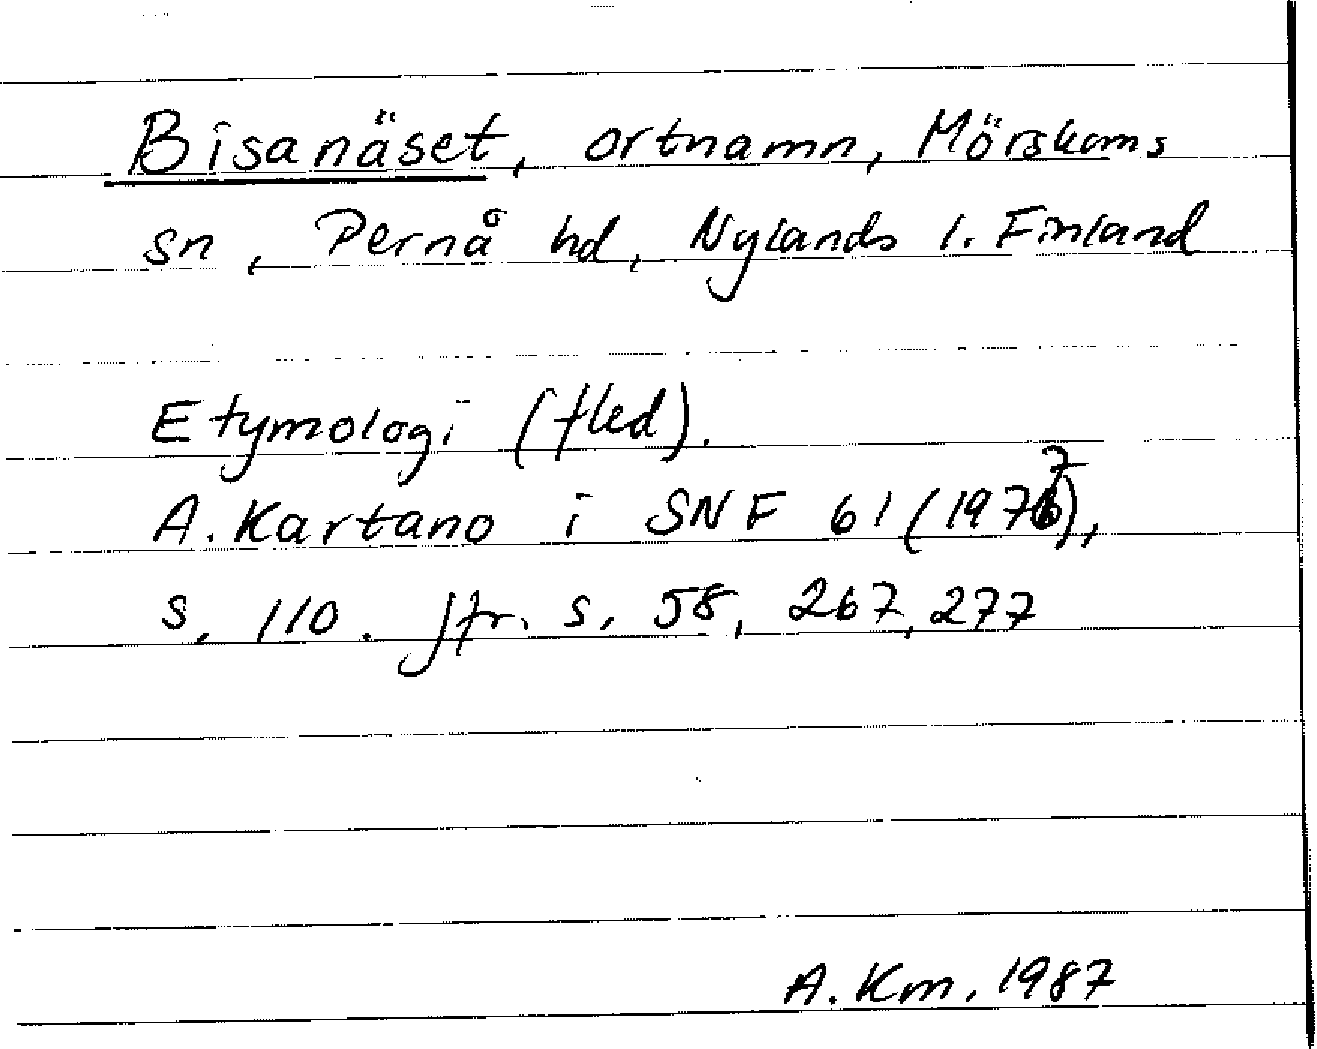 Bisanäset, ortnamn, Mörskoms
sn, Pernå hd, Nylands l. Finland
Etymologi (fled).
A. Kartano i SNF 61 (1977),
s. 110. Jfr. s. 58, 267, 277
A. Km. 1987